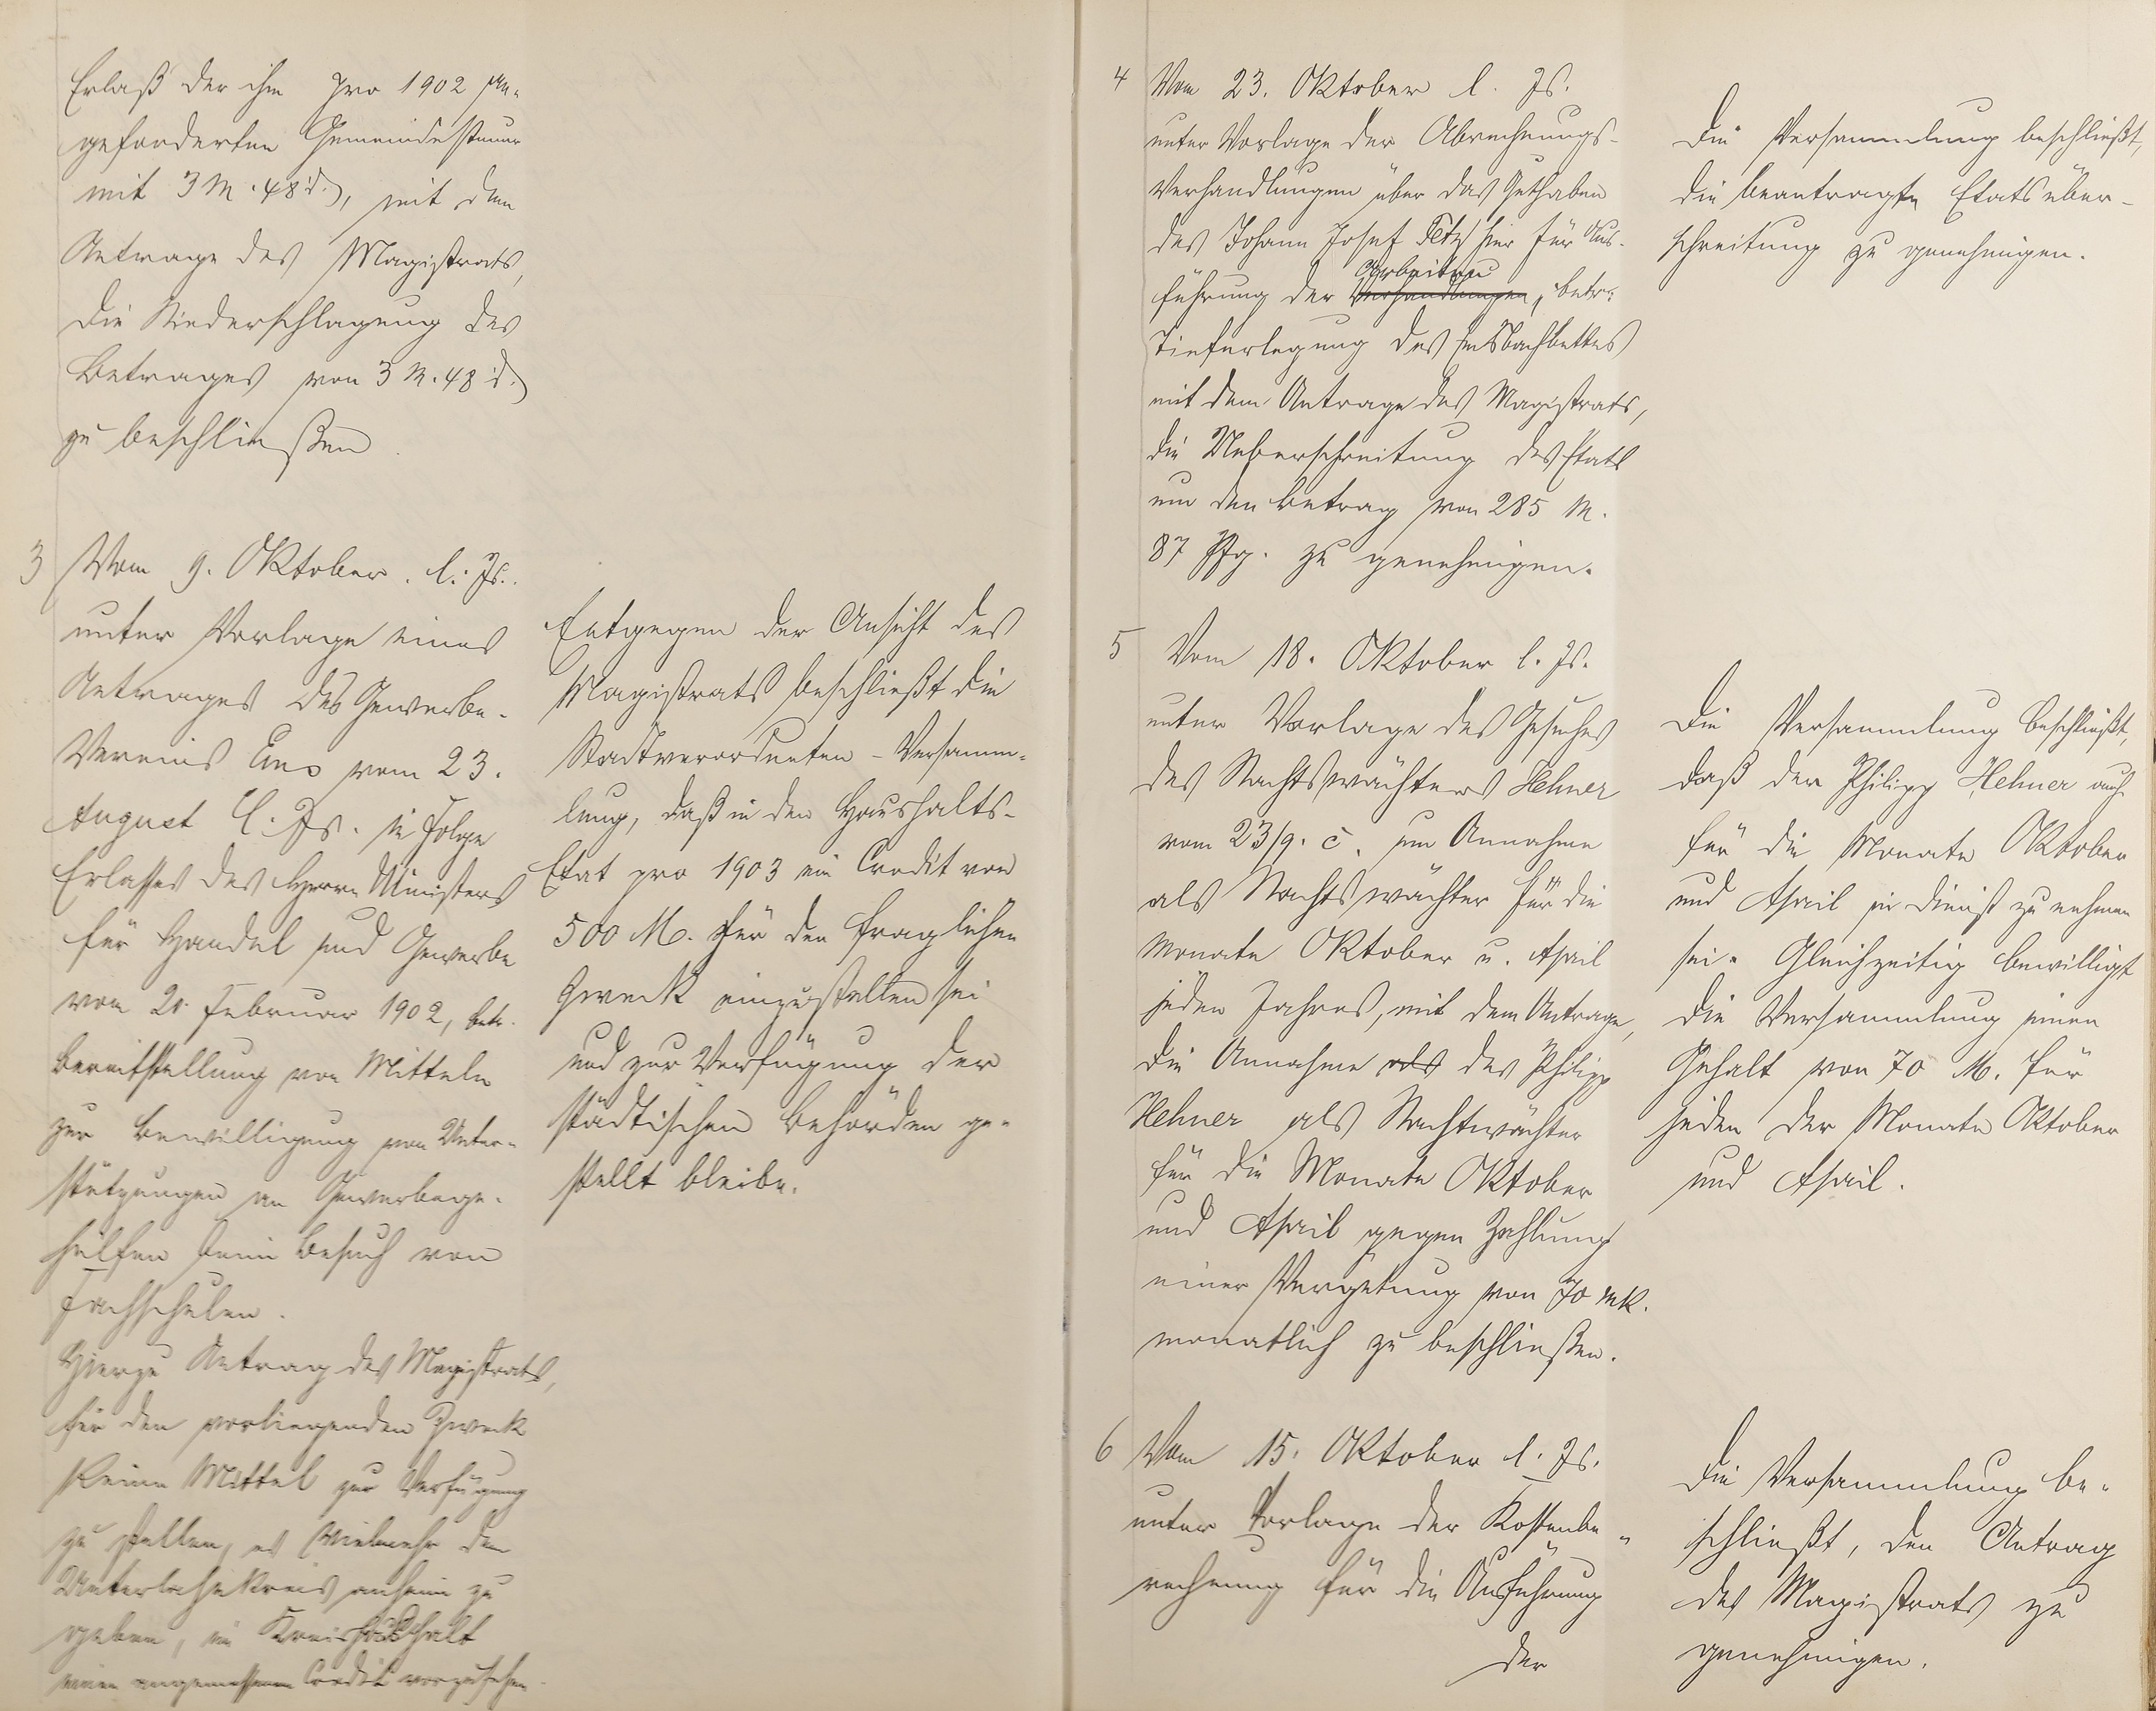 Erlaß der ihm pro 1902 an-
geforderten Gemeindesteuer
mit 3 M. 48 d., mit dem
Antrage des Magistrats,
die Niederschlagung des
Betrages von 3 M. 48 d.
zu beschließen
3 Vom 9. Oktober l. Js.
unter Vorlage eines
Antrages des Gewerbe-
Vereins Ems vom 23.
August l. Js. in Folge
Erlasses des Herrn Ministers
für Handel und Gewerbe
vom 20. Februar 1902, betr.
Bereitstellung von Mitteln
zur Bewilligung von Unter-
stützungen an Gewerbege-
hülfen beim Besuch von
Fachschulen.
Hierzu Antrag des Magistrats,
für den vorliegenden Zweck
keine Mittel zur Verfügung
zu stellen, es vielmehr dem
Unterlahnkreis anheim zu
geben, im Kreishaushalt
einen angemessenen Credit vorzusehen.
Entgegen der Ansicht des
Magistrats beschließt die
Stadtverordneten-Versamm-
lung, daß in den Haushalts-
Etat pro 1903 ein Credit von
500 M. für den fraglichen
Zweck einzustellen sei
und zur Verfügung der
städtischen Behörden ge-
stellt bleibe.
4 Vom 23. Oktober l. Js.
unter Vorlage der Abrechnungs-
Verhandlungen über das Guthaben
des Johann Josef Fetz hier für Aus-
führung der Verhandlungen Arbeiten, betr.
Tieferlegung des Emsbachbettes
mit dem Antrage des Magistrats,
die Ueberschreitung des Etats
um den Betrag von 285 M.
87 Pfg. zu genehmigen.
Die Versammlung beschließt,
die beantragte Etatsüber-
schreitung zu genehmigen.
5 Vom 18. Oktober l. Js.
unter Vorlage des Gesuches
des Nachtswächters Hehner
vom 23/9. c. um Annahme
als Nachtswächter für die
Monate Oktober u. April
jeden Jahres, mit dem Antrage,
die Annahme als des Philipp
Hehner als Nachtwächter
für die Monate Oktober
und April gegen Zahlung
einer Vergütung von 70 Mk.
monatlich zu beschließen.
Die Versammlung beschließt,
daß der Philipp Hehner auch
für die Monate Oktober
und April in Dienst zu nehmen
sei. Gleichzeitig bewilligt
die Versammlung einen
Gehalt von 70 M. für
jeden der Monate Oktober
und April.
6 Vom 15. Oktober l. Js.
unter Vorlage der Kostenbe-
rechnung für die Ausführung
der
Die Versammlung be-
schließt, den Antrag
des Magistrats zu
genehmigen.